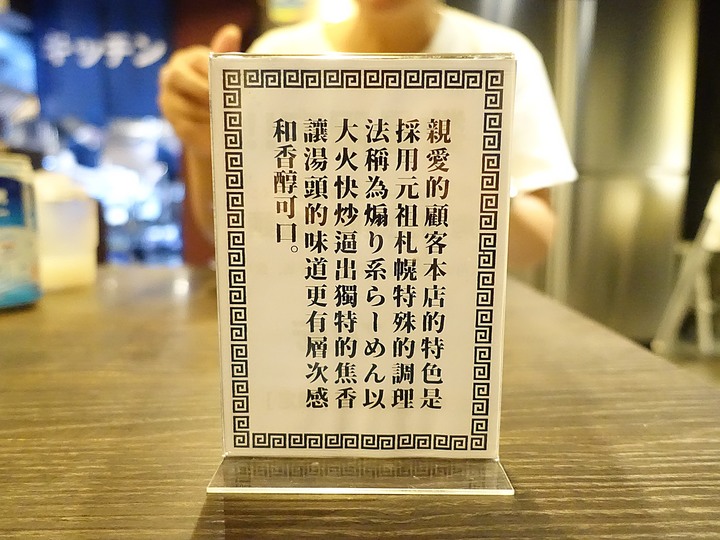 親愛的顧客本店的特色是
採用元祖札幌特殊的調理
法稱為煽り系らーめん以
大火快炒逼出獨特的焦香
讓湯頭的味道更有層次感
和香醇可口。
キッチン